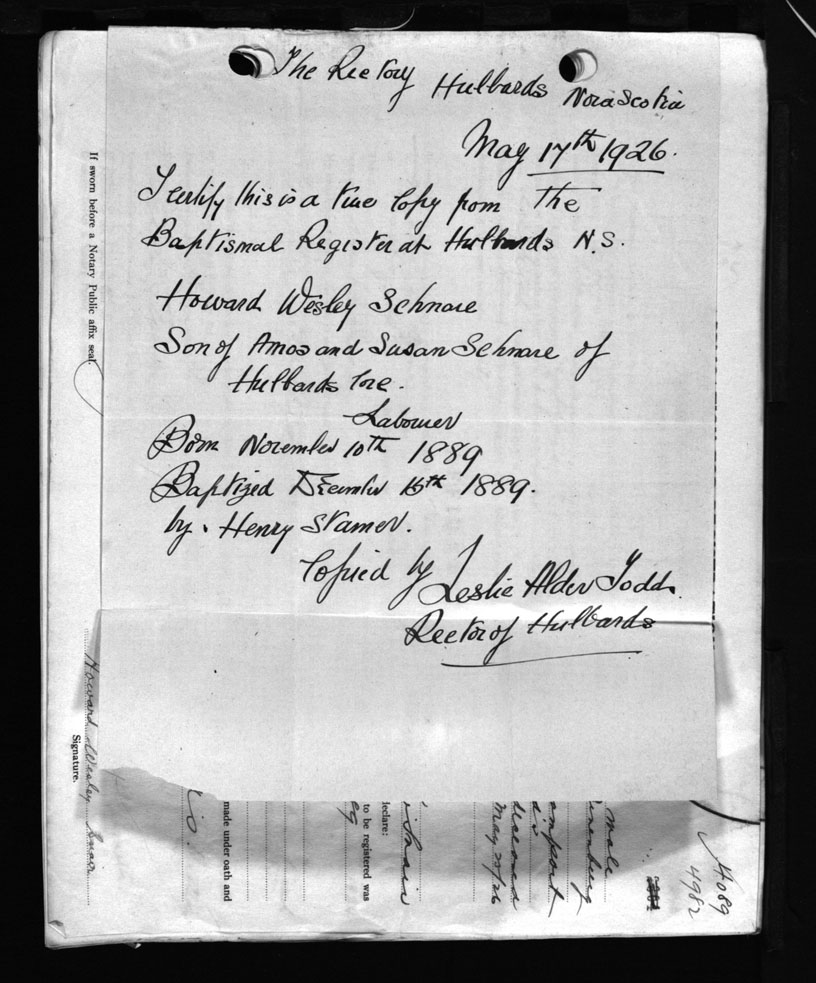 The Rectory Hubbards Nova Scotia
May 17th 1926.
I certify this is a true Copy from The
Baptismal Register at Hubbards N.S.
Howard Wesley Schnare
Son of Amos and Susan Schnare of
Hubbards Cove.
Labourer
Born November 10th 1889
Baptized December 15th 1889.
by. Henry Stamer.
Copied by Leslie Alder Todd.
Rector of Hubbards
If sworn before a Notary Public affix seal.
Howard Wesley Snair
Signature.
made under oath and
to be registered was
declare:
Snair
May 25/26
deceased
male
4089
4982